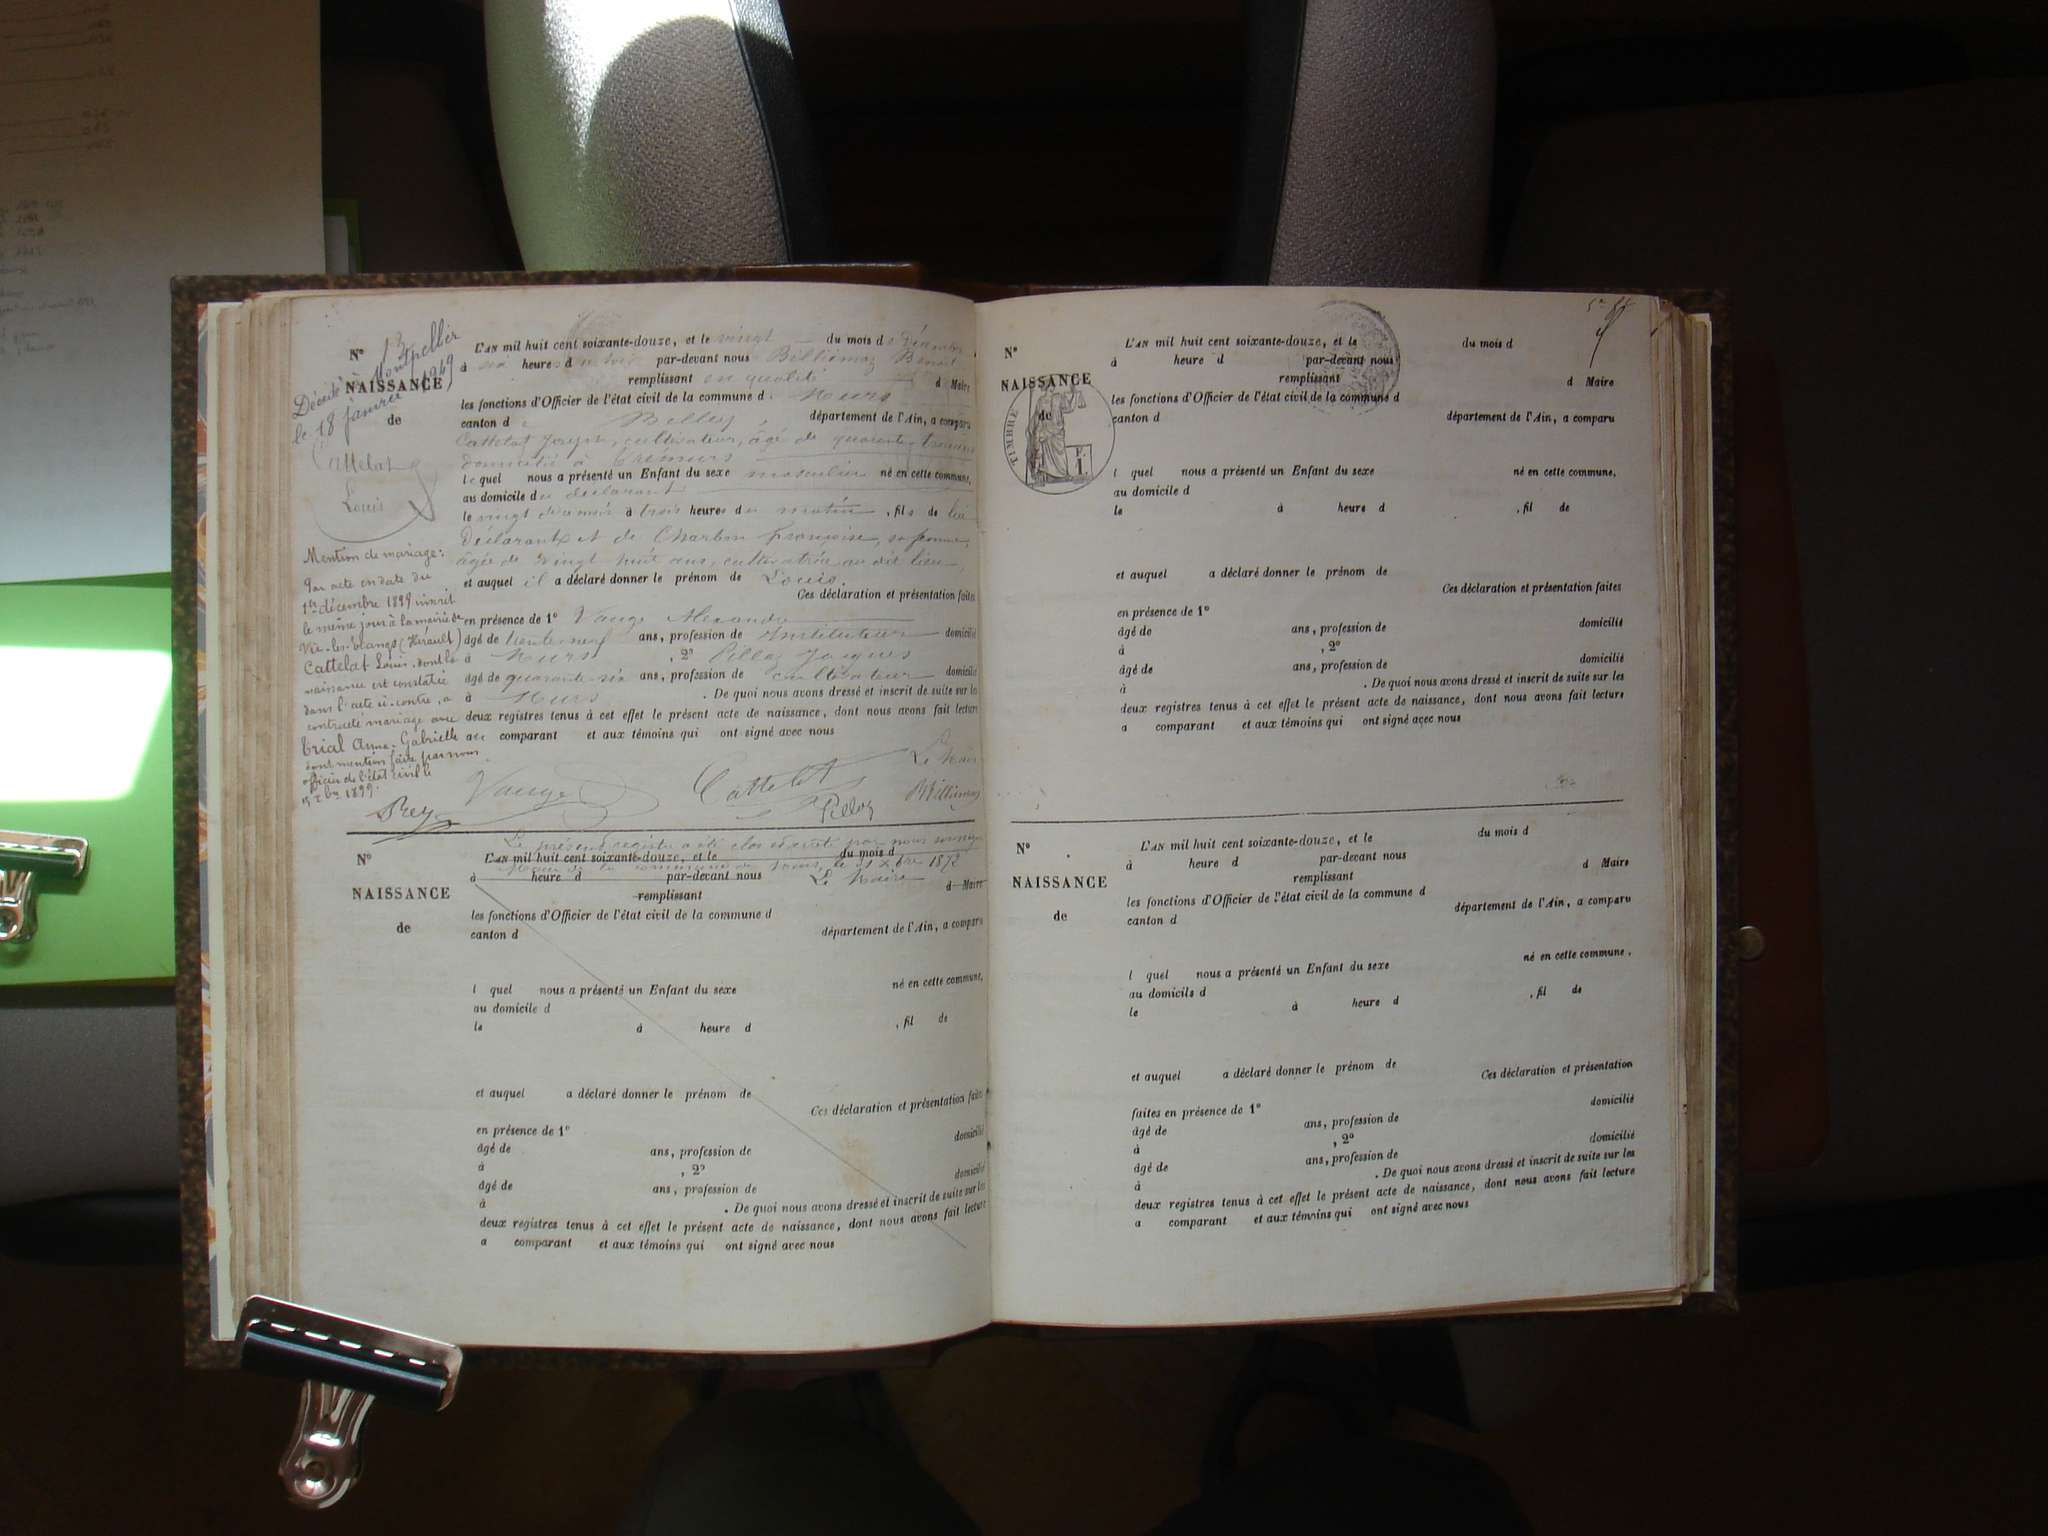 N° 13
NAISSANCE
de
Cattelat
Louis
Décédé à Montpellier
le 18 janvier 1949
Mention de mariage:
Par acte en date du
1er décembre 1899 inscrit
le même jour à la mairie de
Vic-les-Etangs (Hérault)
Cattelat Louis dont la
naissance est constatée
dans l'acte ci-contre, a
contracté mariage avec
Trial Anne-Gabrielle
dont mention faite par nous
officier de l'état civil le
1899.
Prey
L'AN mil huit cent soixante-douze, et le vingt du mois de Décembre
à six heures du soir par-devant nous Billiemaz Benoit
remplissant en qualité d Maire
les fonctions d'Officier de l'état civil de la commune d. Murs
canton de Belley département de l'Ain, a comparu
Cattelat Joseph, cultivateur, âgé de quarante trois ans
domicilié à Crémurs
lequel nous a présenté un Enfant du sexe masculin né en cette commune,
au domicile du déclarant
le vingt du mois à trois heures du matin, fils de lui
Déclarant et de Charbon Françoise, sa femme,
âgée de vingt huit ans, cultivatrice au dit lieu,
et auquel il a déclaré donner le prénom de Louis.
Ces déclaration et présentation faites
en présence de 1° Vauge Alexandre
âgé de trente-neuf ans, profession de Instituteur domicilié
à Murs, 2° Pilloz Jacques
âgé de quarante-six ans, profession de cultivateur domicilié
à Murs. De quoi nous avons dressé et inscrit de suite sur les
deux registres tenus à cet effet le présent acte de naissance, dont nous avons fait lecture
au comparant et aux témoins qui ont signé avec nous
Vauge Cattelat Pilloz Le Maire
Billiemaz
Le présent registre a été clos et arrêté par nous soussigné
Maire de la commune de Murs, le 31 Xbre 1872
Le Maire
N°
NAISSANCE
de
L'AN mil huit cent soixante-douze, et le du mois d
à heure d par-devant nous
remplissant d Maire
les fonctions d'Officier de l'état civil de la commune d
canton d département de l'Ain, a comparu
l quel nous a présenté un Enfant du sexe né en cette commune,
au domicile d
le à heure d , fil de
et auquel a déclaré donner le prénom de
Ces déclaration et présentation faites
en présence de 1°
âgé de ans, profession de domicilié
à , 2°
âgé de ans, profession de domicilié
à . De quoi nous avons dressé et inscrit de suite sur les
deux registres tenus à cet effet le présent acte de naissance, dont nous avons fait lecture
a comparant et aux témoins qui ont signé avec nous
N°
NAISSANCE
de
TIMBRE
F.
1.
L'AN mil huit cent soixante-douze, et le du mois d
à heure d par-devant nous
remplissant d Maire
les fonctions d'Officier de l'état civil de la commune d
canton d département de l'Ain, a comparu
l quel nous a présenté un Enfant du sexe né en cette commune,
au domicile d
le à heure d , fil de
et auquel a déclaré donner le prénom de
Ces déclaration et présentation faites
en présence de 1°
âgé de ans, profession de domicilié
à , 2°
âgé de ans, profession de domicilié
à . De quoi nous avons dressé et inscrit de suite sur les
deux registres tenus à cet effet le présent acte de naissance, dont nous avons fait lecture
a comparant et aux témoins qui ont signé avec nous
N°
NAISSANCE
de
L'AN mil huit cent soixante-douze, et le du mois d
à heure d par-devant nous
remplissant d Maire
les fonctions d'Officier de l'état civil de la commune d
canton d département de l'Ain, a comparu
l quel nous a présenté un Enfant du sexe né en cette commune.
au domicile d
le à heure d , fil de
et auquel a déclaré donner le prénom de
Ces déclaration et présentation
faites en présence de 1°
âgé de ans, profession de domicilié
à , 2°
âgé de ans, profession de domicilié
à . De quoi nous avons dressé et inscrit de suite sur les
deux registres tenus à cet effet le présent acte de naissance, dont nous avons fait lecture
a comparant et aux témoins qui ont signé avec nous